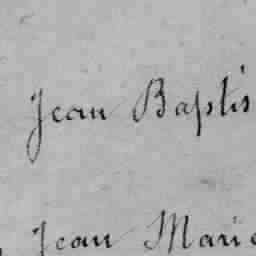 Jean Baptis
Jean Marie